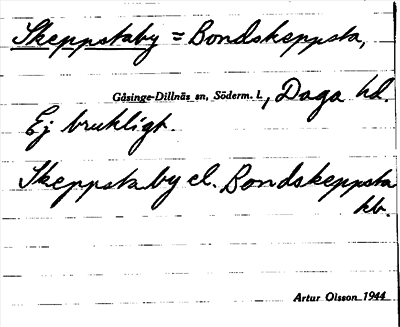 Skeppstaby = Bondskeppsta,
Gåsinge-Dillnäs sn, Söderm. l., Daga hd.
Ej brukligt.
Skeppstaby el. Bondskeppsta
kb.
Artur Olsson 1944